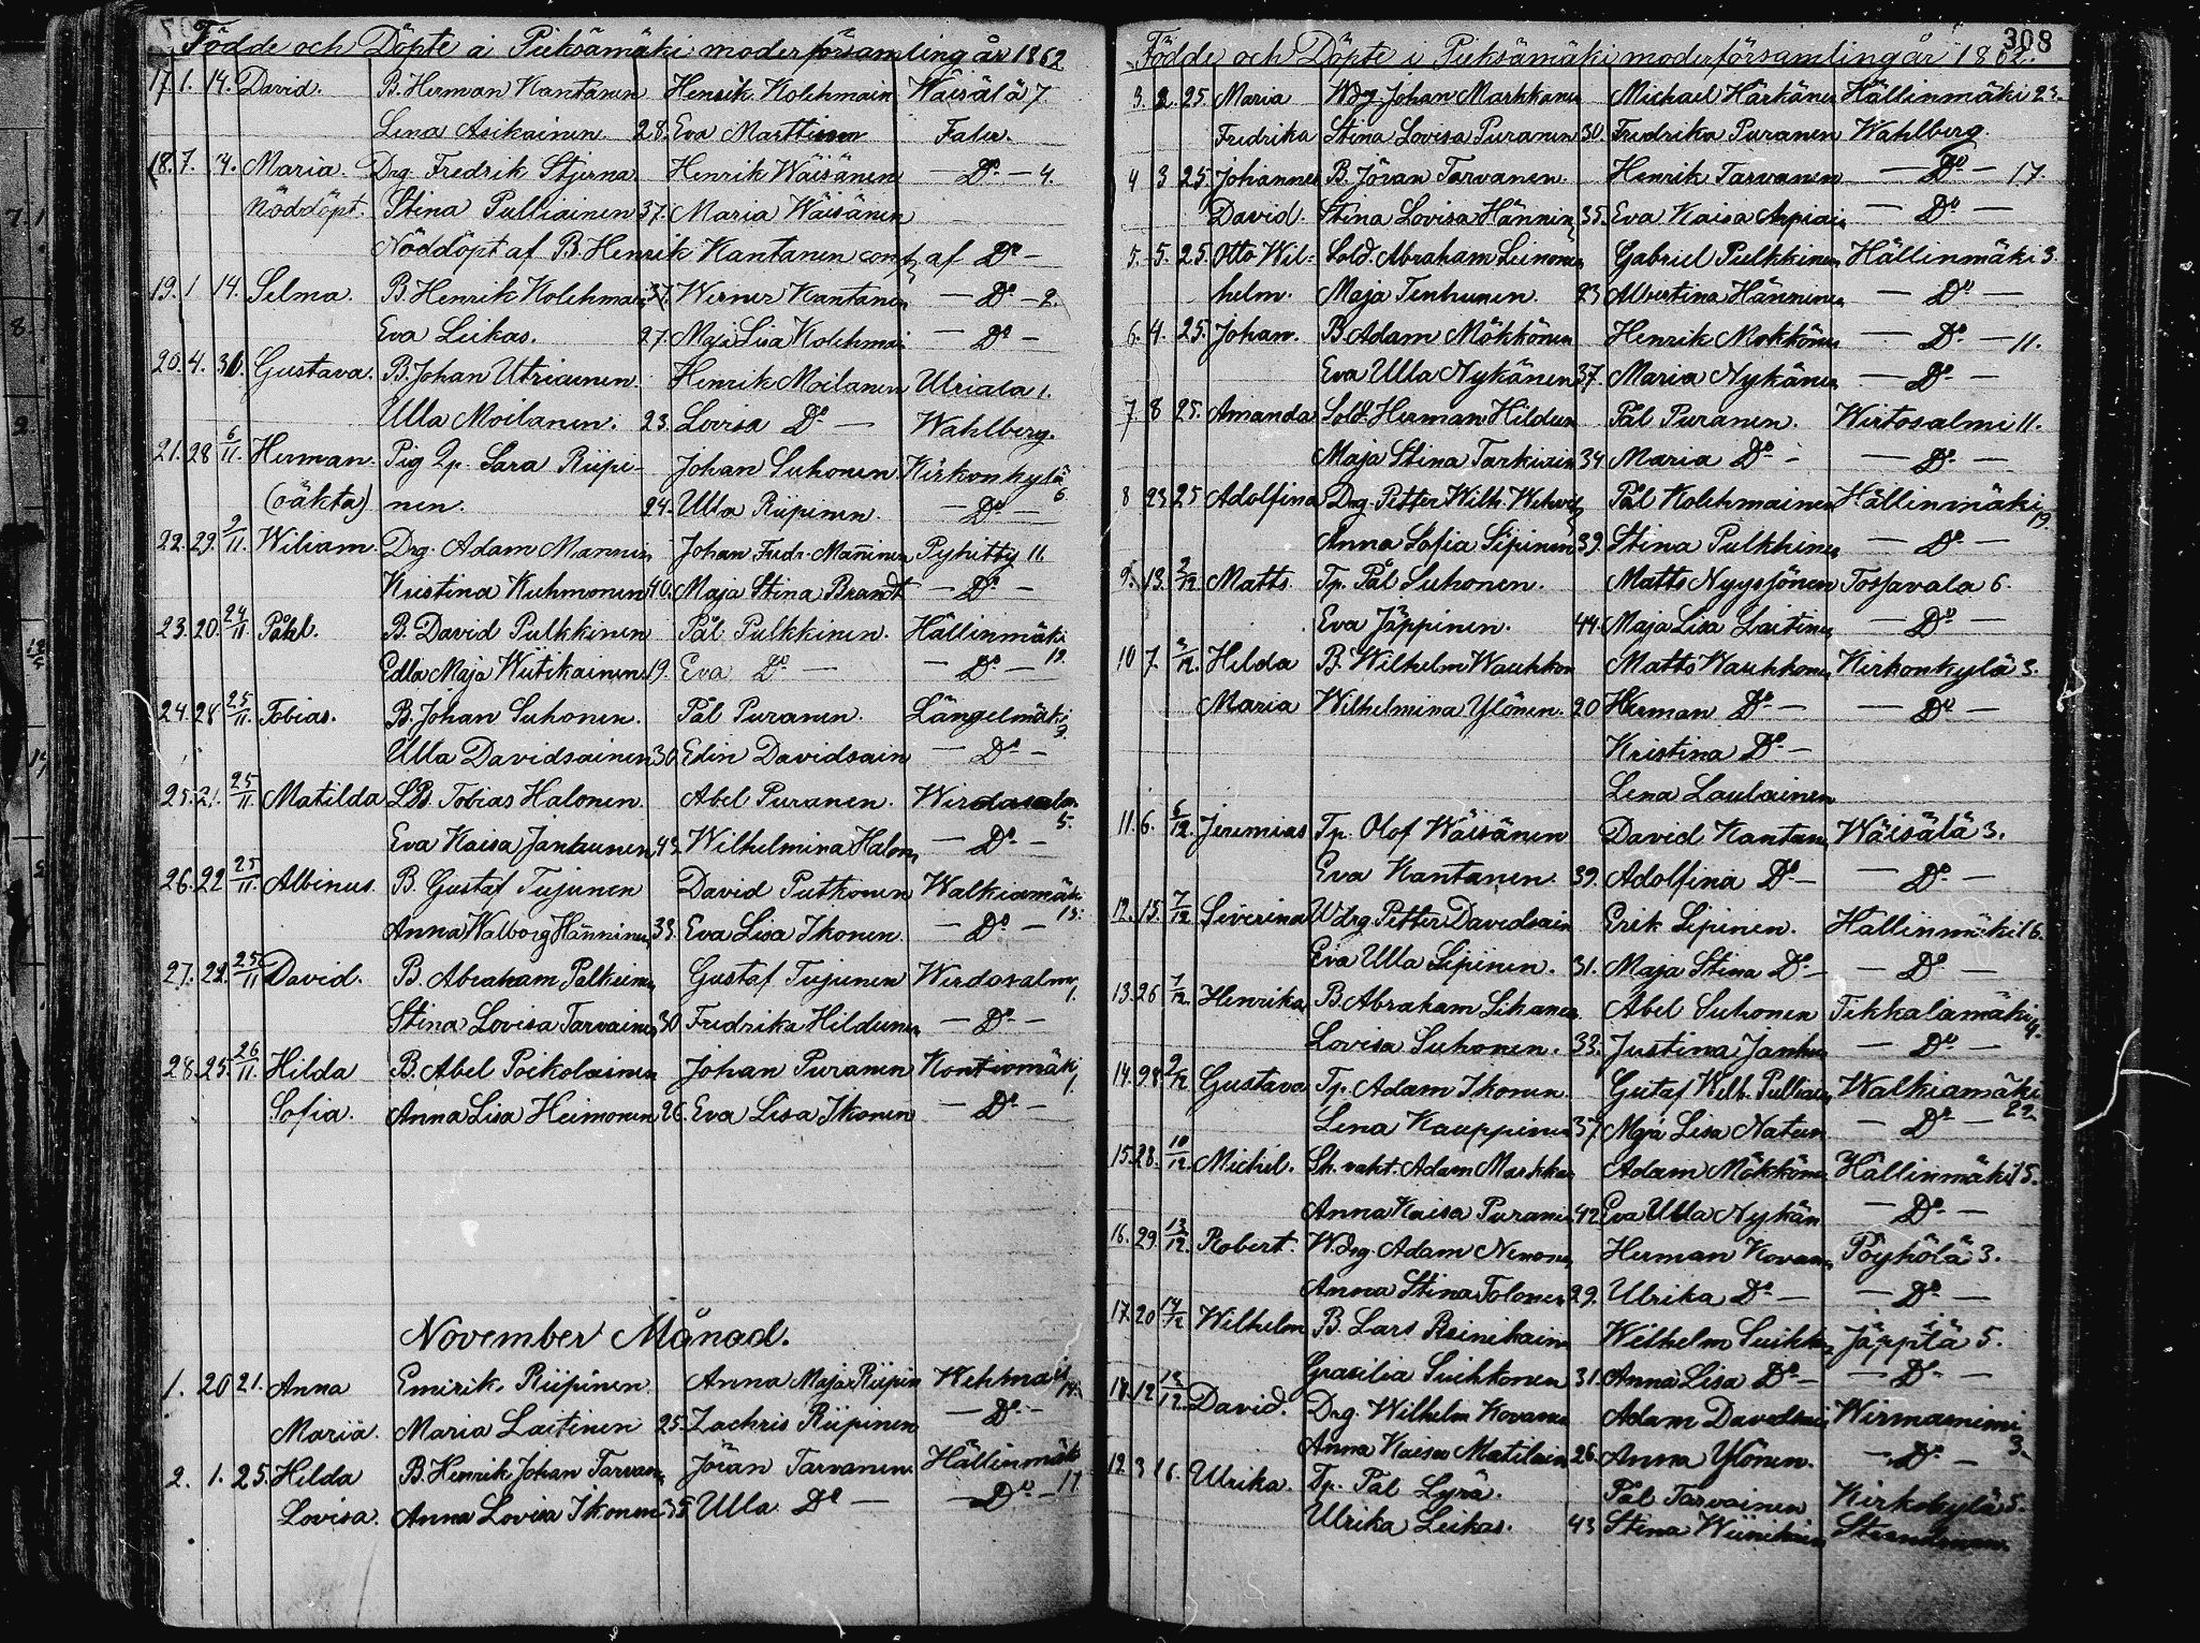 Födde och Döpte i Pieksämäki moderförsamling år 1862
17. 1. 14. David. B. Herman Kantanen Henrik Kolehmain Wäisälä 7.
Lena Asikainen. 28. Eva Marttinen Falin.
18. 7. 14. Maria. Drg. Fredrik Stjerna. Henrik Wäisänen — Do — 4.
Nöddöpt. Stina Pulliainen 37. Maria Wäisänen
Nöddöpt af B. Henrik Kantanen conf. af Do —
19. 1 14. Selma. B. Henrik Kolehmain 37. Werner Kantanen — Do — 2.
Eva Leikas. 27. Maja Lisa Kolehmai — Do —
20. 4. 30. Gustava. B. Johan Utriainen. Henrik Moilanen Utriala 1.
Ulla Moilanen. 23. Lovisa Do — Wahlberg.
21. 28 6/11. Herman. Pig. Ip. Sara Riipi- Johan Suhonen Kirkonkylä 6
(oäkta) nen. 24. Ulla Riipinen. — Do —
22. 29. 9/11. Wiliam. Drg. Adam Mannin Johan Fredr. Mañinen Pyhitty 11.
Kristina Kuhmonen 40. Maja Stina Brandt — Do —
23. 20. 24/11 Påhl. B. David Pulkkinen Pål Pulkkinen. Hällinmäki
Edla Maja Wiitikainen. 19. Eva Do — — Do — 19.
24. 28 25/11. Tobias. B. Johan Suhonen. Pål Puranen. Längelmäki 3.
Ulla Davidsainen 30 Elin Davidsain — Do —
25. 21. 25/11. Matilda LB. Tobias Halonen. Abel Puranen. 5.
Eva Kaisa Janhunen 43. Wilhelmina Halon — Do —
26. 22 25/11. Albinus. B. Gustaf Tujunen David Putkonen Walkiamäki 13.
Anna Walborg Hänninen 33. Eva Lisa Ikonen. — Do —
27. 22. 25/11 David. B. Abraham Gustaf Tujunen Wirdosalmi 1.
Stina Lovisa Tarvainen 30 Fredrika Hildunen — Do —
28. 25. 26/11. Hilda B. Abel Poikolainen Johan Puranen Kontiomäki 1.
Sofia. Anna Lisa Heimonen 26. Eva Lisa Ikonen — Do —
November Månad.
1. 20 21. Anna Emirik. Riipinen. Anna Maja Riipin 14.
Maria. Maria Laitinen 25. Zachris Riipinen — Do —
2. 1. 25. Hilda B. Henrik Johan Tarvan Jöran Tarvanen Hällinmäk
Lovisa. Anna Lovisa Ikonen 35 Ulla Do — — Do — 17.
308
Födde och Döpte i Pieksämäki moderförsamling år 1862.
3. 2. 25. Maria Wdrg. Johan Markkanen Michael Härkänen Hällinmäki 23.
Fredrika Stina Lovisa Puranen 30. Fredrika Puranen Wahlberg.
4 3 25. Johannes B. Jöran Tarvanen. Henrik Tarvanen — Do — 17.
David. Stina Lovisa Hännin 35. Eva Kaisa Arpiain — Do —
5. 5. 25. Otto Wil- Sold. Abraham Leinonen Gabriel Pulkkinen Hällinmäki 3.
helm. Maja Tenhunen. 23 Albertina Hänninen — Do —
6. 4. 25. Johan. B. Adam Mökkönen Henrik Mökkönen — Do — 11.
Eva Ulla Nykänen 37. Maria Nykänen — Do —
7 8 25. Amanda Sold. Herman Hildun Pål Puranen. Wirtosalmi 11.
Maja Stina Tarkiain 34 Maria Do — — Do —
8 23 25 Adolfina Drg. Petter Wilh. Pål Kolehmainen Hällinmäki 19.
Anna Sofia Sipinen 39. Stina Pulkkinen — Do —
9. 13. 2/12 Matts. Tp. Pål Suhonen. Matts Nyyssönen Tossavala 6.
Eva Jäppinen. 44. Maja Lisa Laitinen — Do —
10 7. 3/12. Hilda B. Wilhelm Wauhkon Matts Wauhkonen Kirkonkylä 3.
Maria Wilhelmina Ylönen. 20 Herman Do — — Do —
Kristina Do —
Lena Laulainen
11. 6. 6/12. Jeremias Tp. Olof Wäisänen David Kantan Wäisälä 3.
Eva Kantanen. 39. Adolfina Do — — Do —
12. 15. 7/12 Severina Wdrg Petter Davidsain Erik Sipinen. Hällinmäki 16.
Eva Ulla Sipinen. 31. Maja Stina Do — — Do —
13. 26 7/12. Henrika B. Abraham Abel Suhonen Tikkalamäki 4.
Lovisa Suhonen. 33. Justina Janhu — Do —
14. 9/12 Gustava Tp. Adam Ikonen. Gustaf Wilh. Pulliain Walkiamäki
Lena Kauppinen 37. Maja Lisa — Do — 22.
15. 28. 10/12. Michel. Sk. vakt. Adam Markka Adam Mökkönen Hällinmäki 15.
Anna Kaisa Puranen 42 Eva Ulla Nykän — Do —
16. 29. 13/12. Robert. Wdrg. Adam Herman Kovan Pöyhölä 3.
Anna Stina Tolonen 29. Ulrika Do — — Do —
17. 20 14/12 Wilhelm B. Lars Reinikain Wilhelm Suihko Jäppilä 5.
Grasilia Suihkonen 31. Anna Lisa Do — — Do —
18. 12 David. Drg. Wilhelm Kovanen Adam Davidsai 3.
Anna Kaisa Matilain 26. Anna Ylönen. — Do —
19. 3 16. Ulrika. Tp. Pål Lyrä. Pål Tarvainen Kirkokylä 5.
Ulrika Leikas. 43 Stina